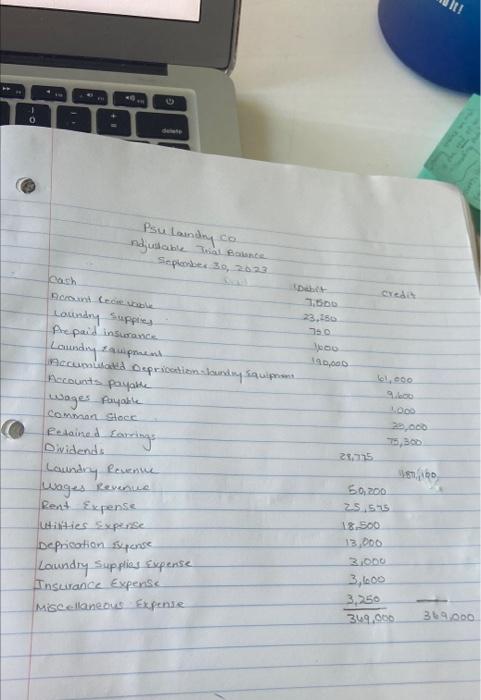 delete
Psu Laundry co
Adjustable Trial Balance
September 30, 2023
Debit Credit
Cash 7,500
Account Recievable 23,250
Laundry Supplies 750
Prepaid insurance 1,000
Laundry Equipment 190,000
Accumulated Deprication-laundry Equipment 61,000
Accounts payable 9,600
Wages Payable 1,000
Common Stock
Retained Earrings 75,300
Dividends 28,775
Laundry Revenue
Wages Revenue 50,200
Rent Expense 25,575
Utilities Expense 18,500
Deprication Expense 13,000
Laundry Supplies Expense 3,000
Insurance Expense 3,600
Miscellaneous Expense 3,250
369,000 369,000